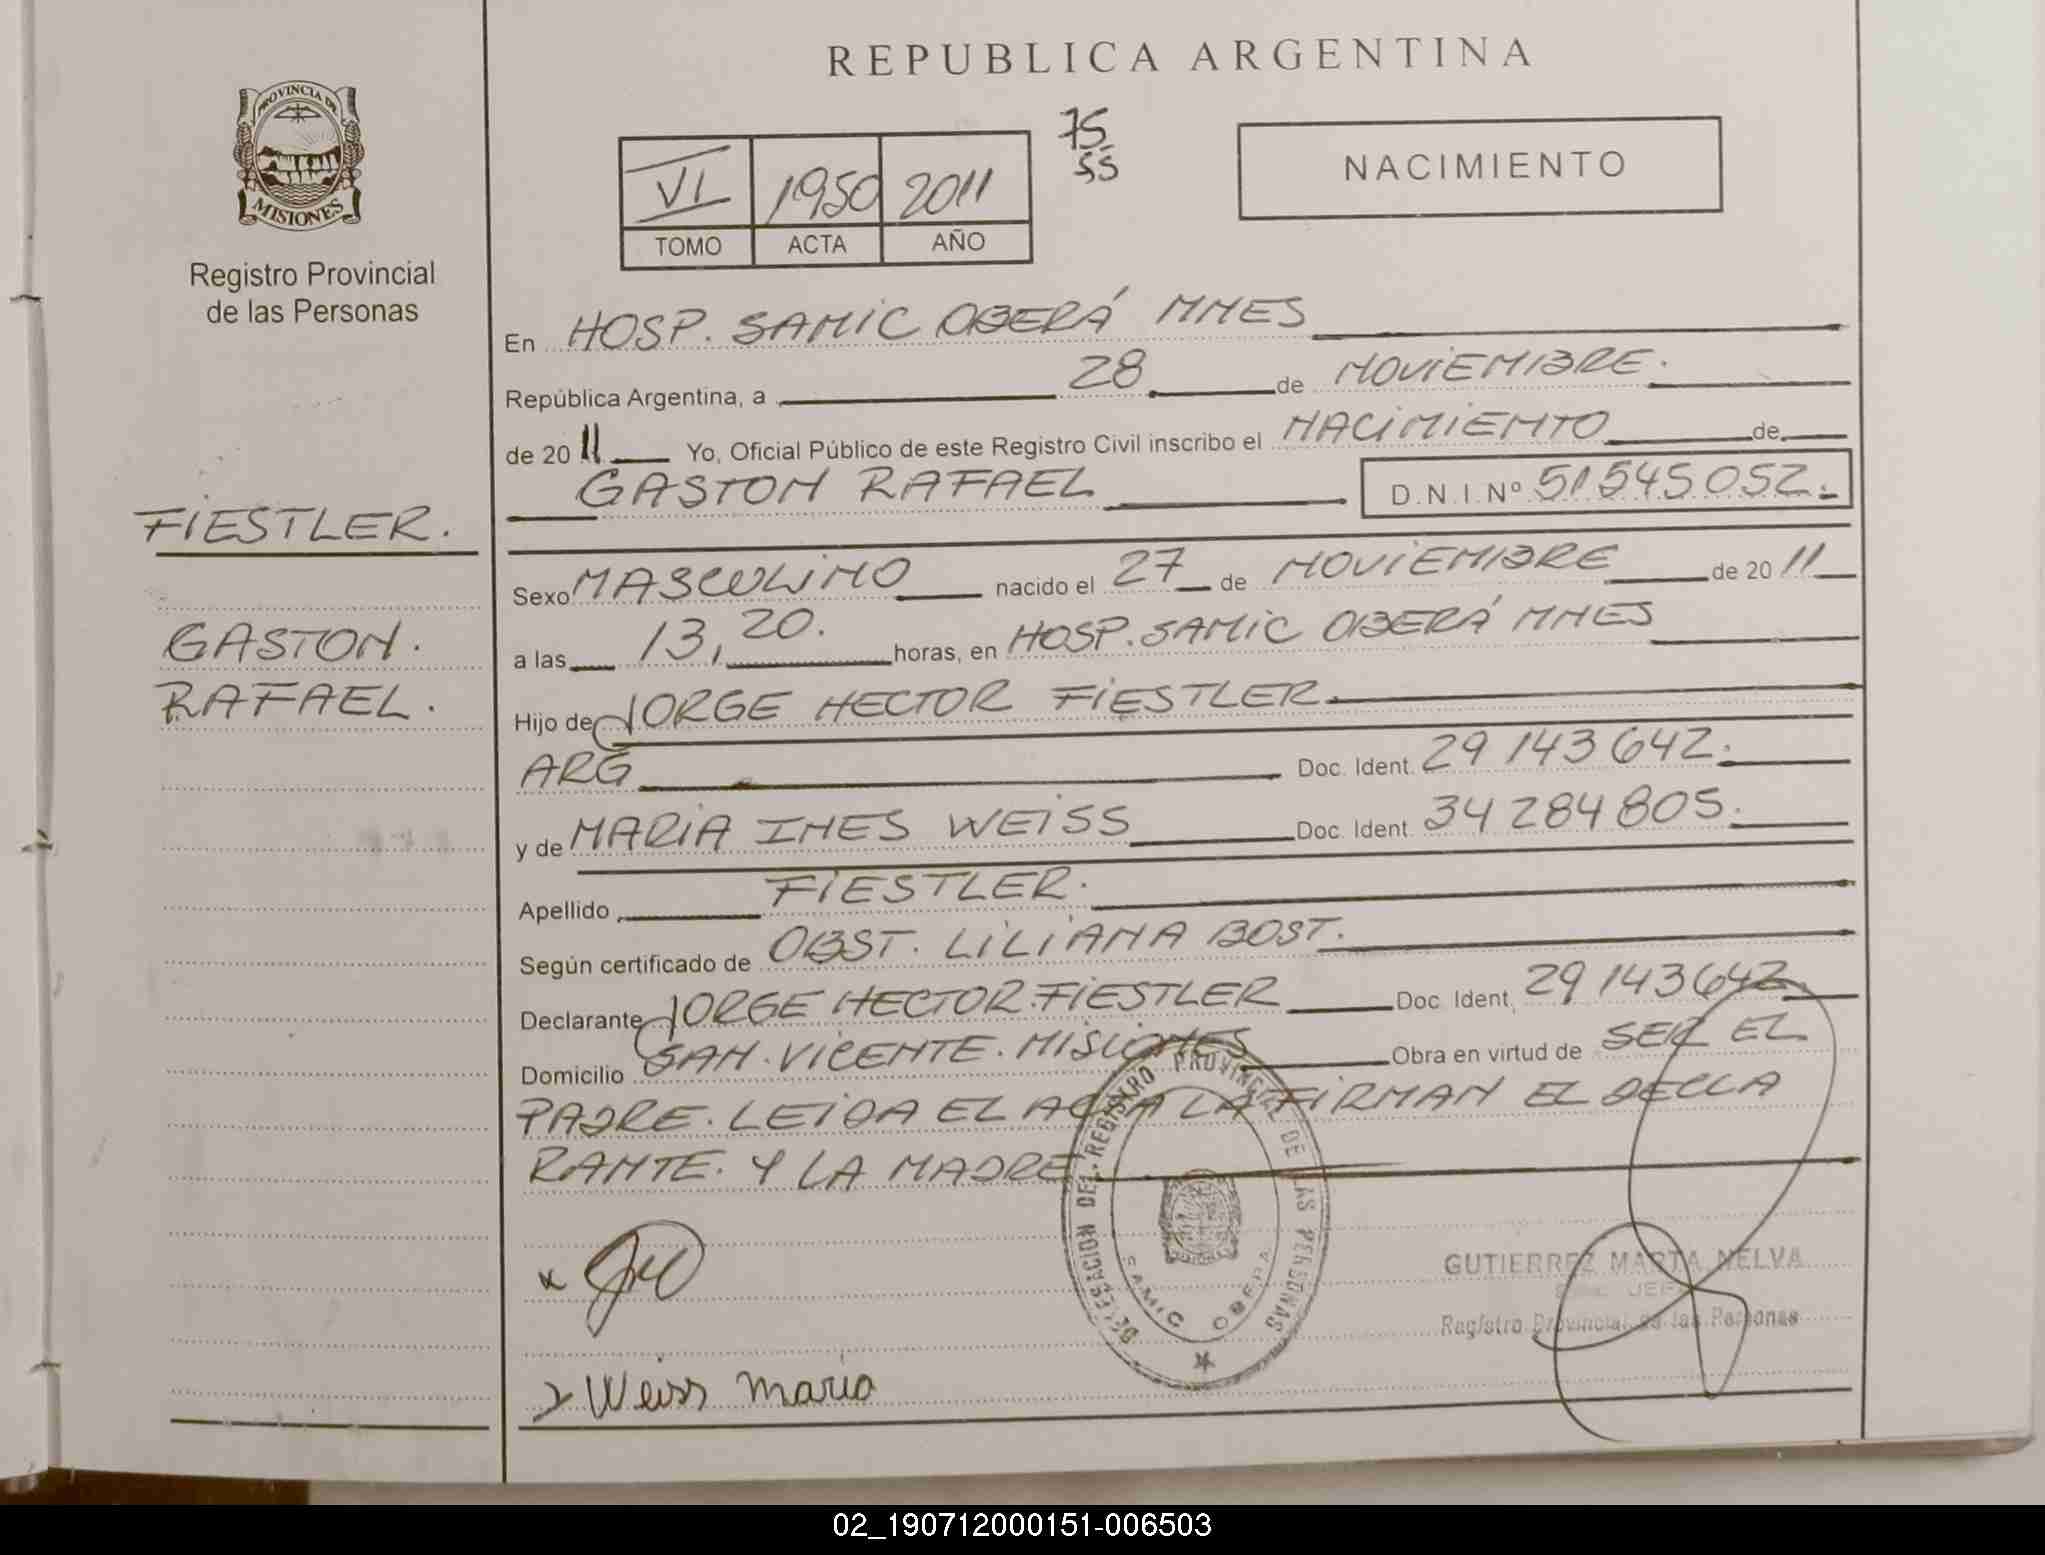 REPUBLICA ARGENTINA
PROVINCIA DE
MISIONES
Registro Provincial
de las Personas
75
55
VI 1950 2011
TOMO ACTA AÑO
NACIMIENTO
FIESTLER.
GASTON.
RAFAEL.
En HOSP. SAMIC OBERÁ MNES
República Argentina, a 28 de NOVIEMBRE.
de 20 11 Yo, Oficial Público de este Registro Civil inscribo el NACIMIENTO de
GASTON RAFAEL D.N.I. Nº 51545052.
Sexo MASCULINO nacido el 27 de NOVIEMBRE de 20 11
a las 13,20. horas, en HOSP. SAMIC OBERÁ MNES
Hijo de JORGE HECTOR FIESTLER
ARG Doc. Ident. 29 143 642.
y de MARIA INES WEISS Doc. Ident. 34 284 805.
Apellido FIESTLER.
Según certificado de OBST. LILIANA BOST.
Declarante JORGE HECTOR FIESTLER Doc. Ident. 29 143 642
Domicilio SAN. VICENTE. MISIONES Obra en virtud de SER EL
PADRE. LEIDA EL ACTA LA FIRMAN EL DECLA
RANTE. Y LA MADRE
DELEGACION DEL REGISTRO PROVINCIAL DE LAS PERSONAS
SAMIC OBERA
GUTIERREZ MARTA NELVA
Registro Provincial de las Personas
Weiss Maria
02_190712000151-006503